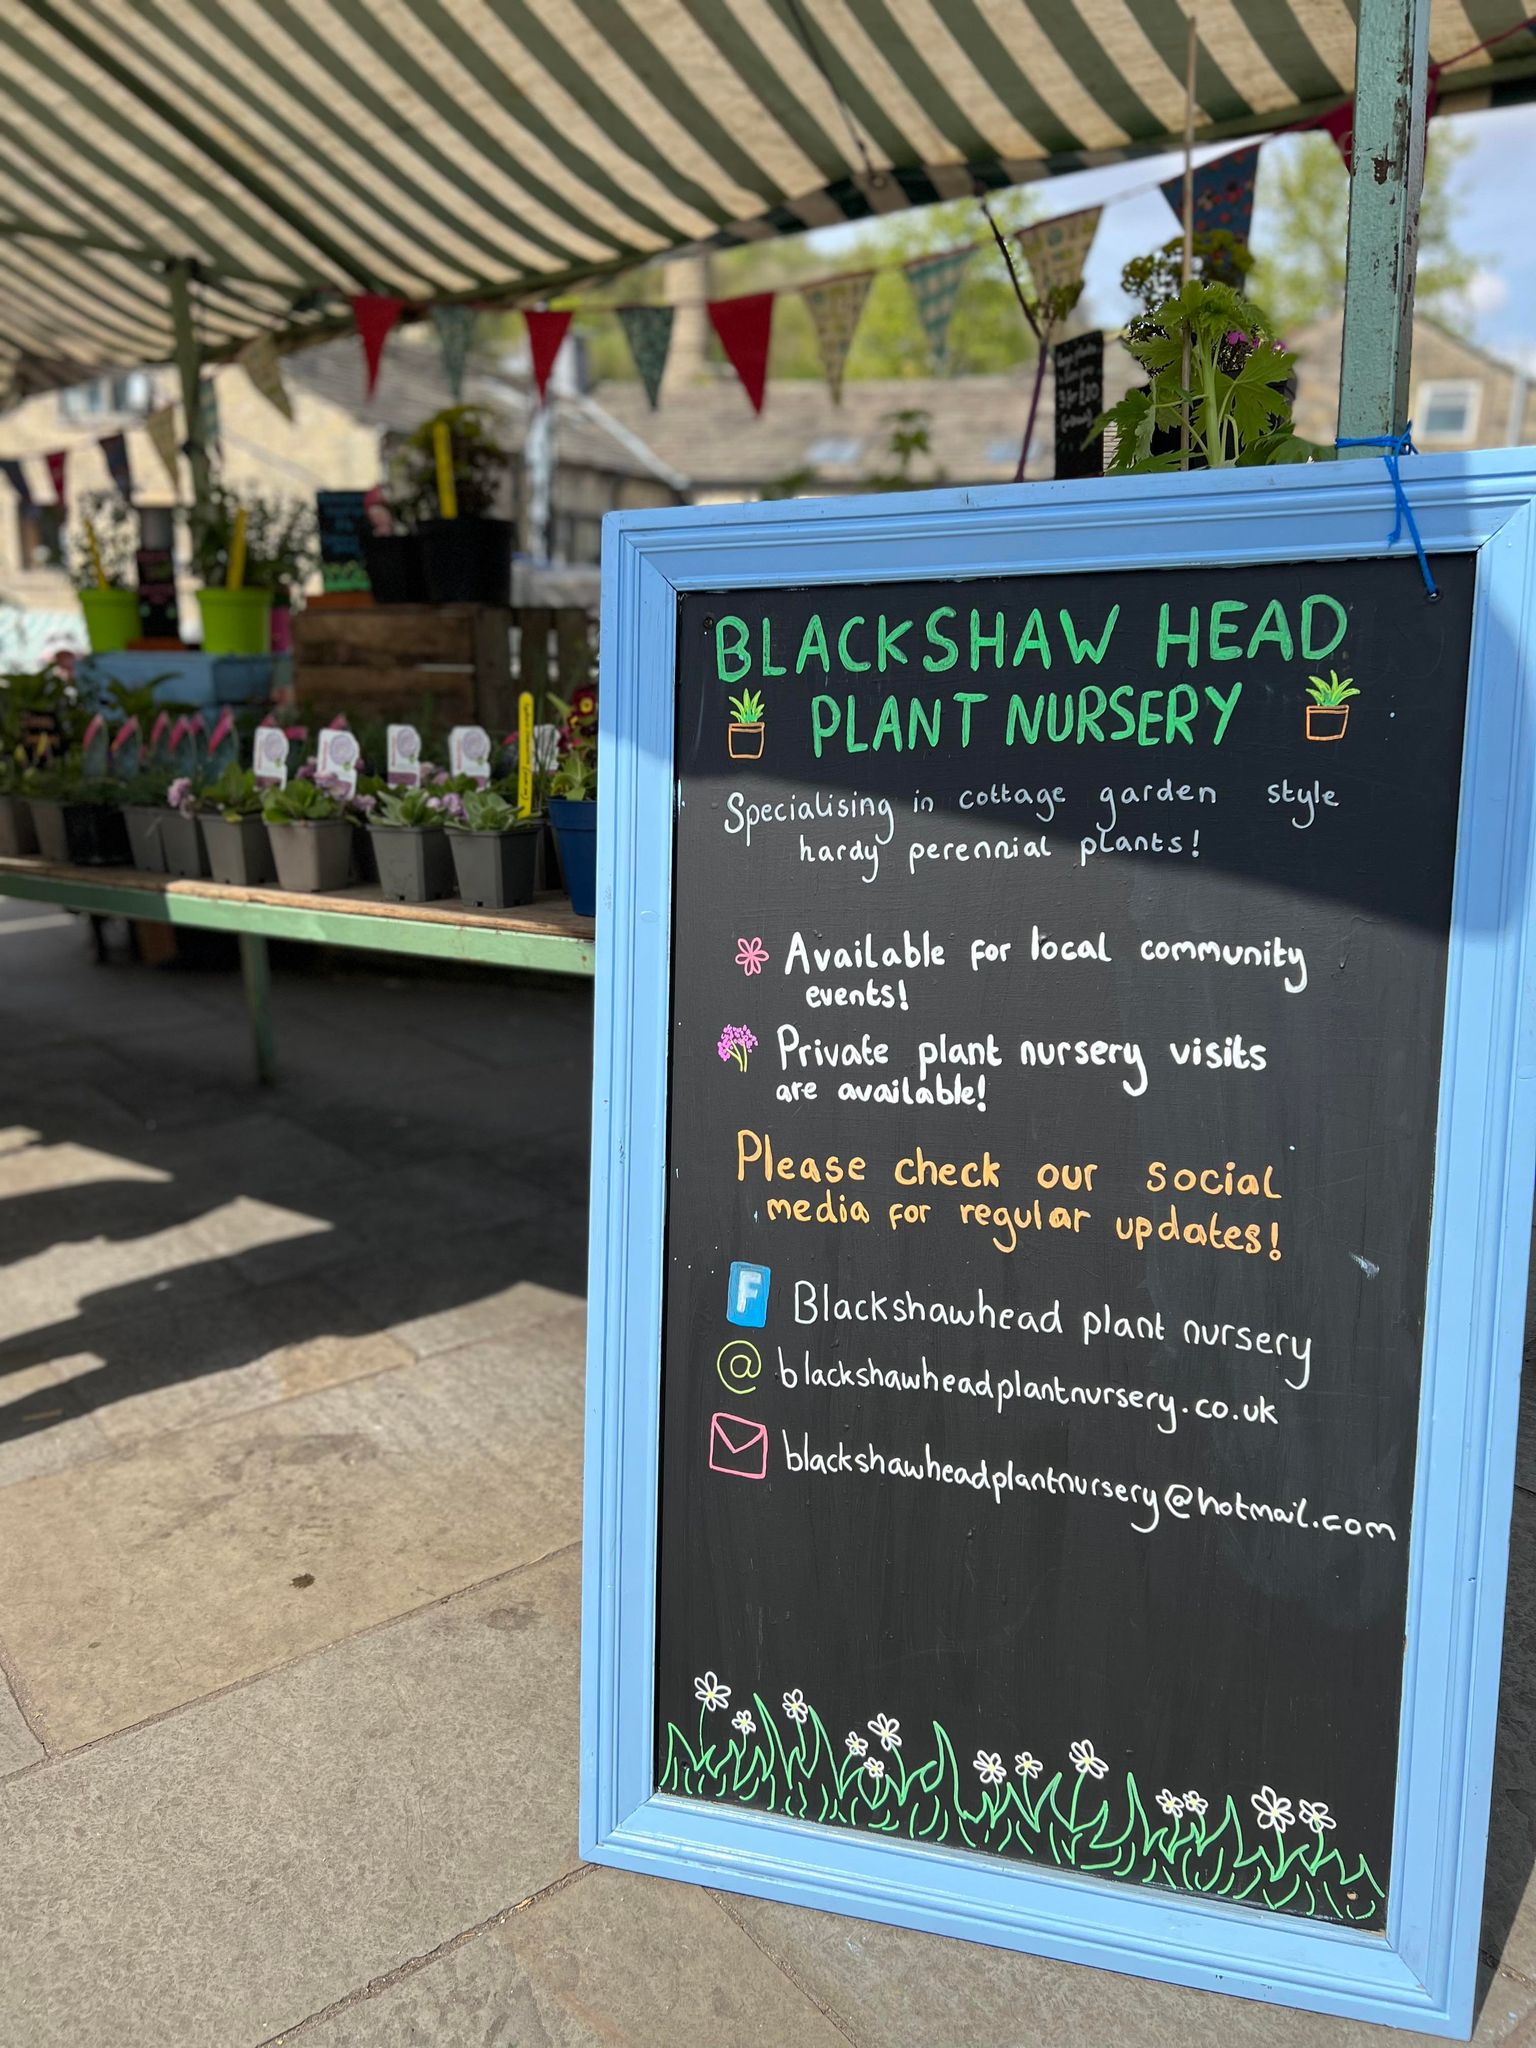 BLACKSHAW HEAD
PLANT NURSERY
Specialising in cottage garden style
hardy perennial plants!
Available for local community
events!
Private plant nursery visits
are available!
Please check our social
media for regular updates!
F Blackshawhead plant nursery
@ blackshawheadplantnursery.co.uk
blackshawheadplantnursery@hotmail.com
3 for £20